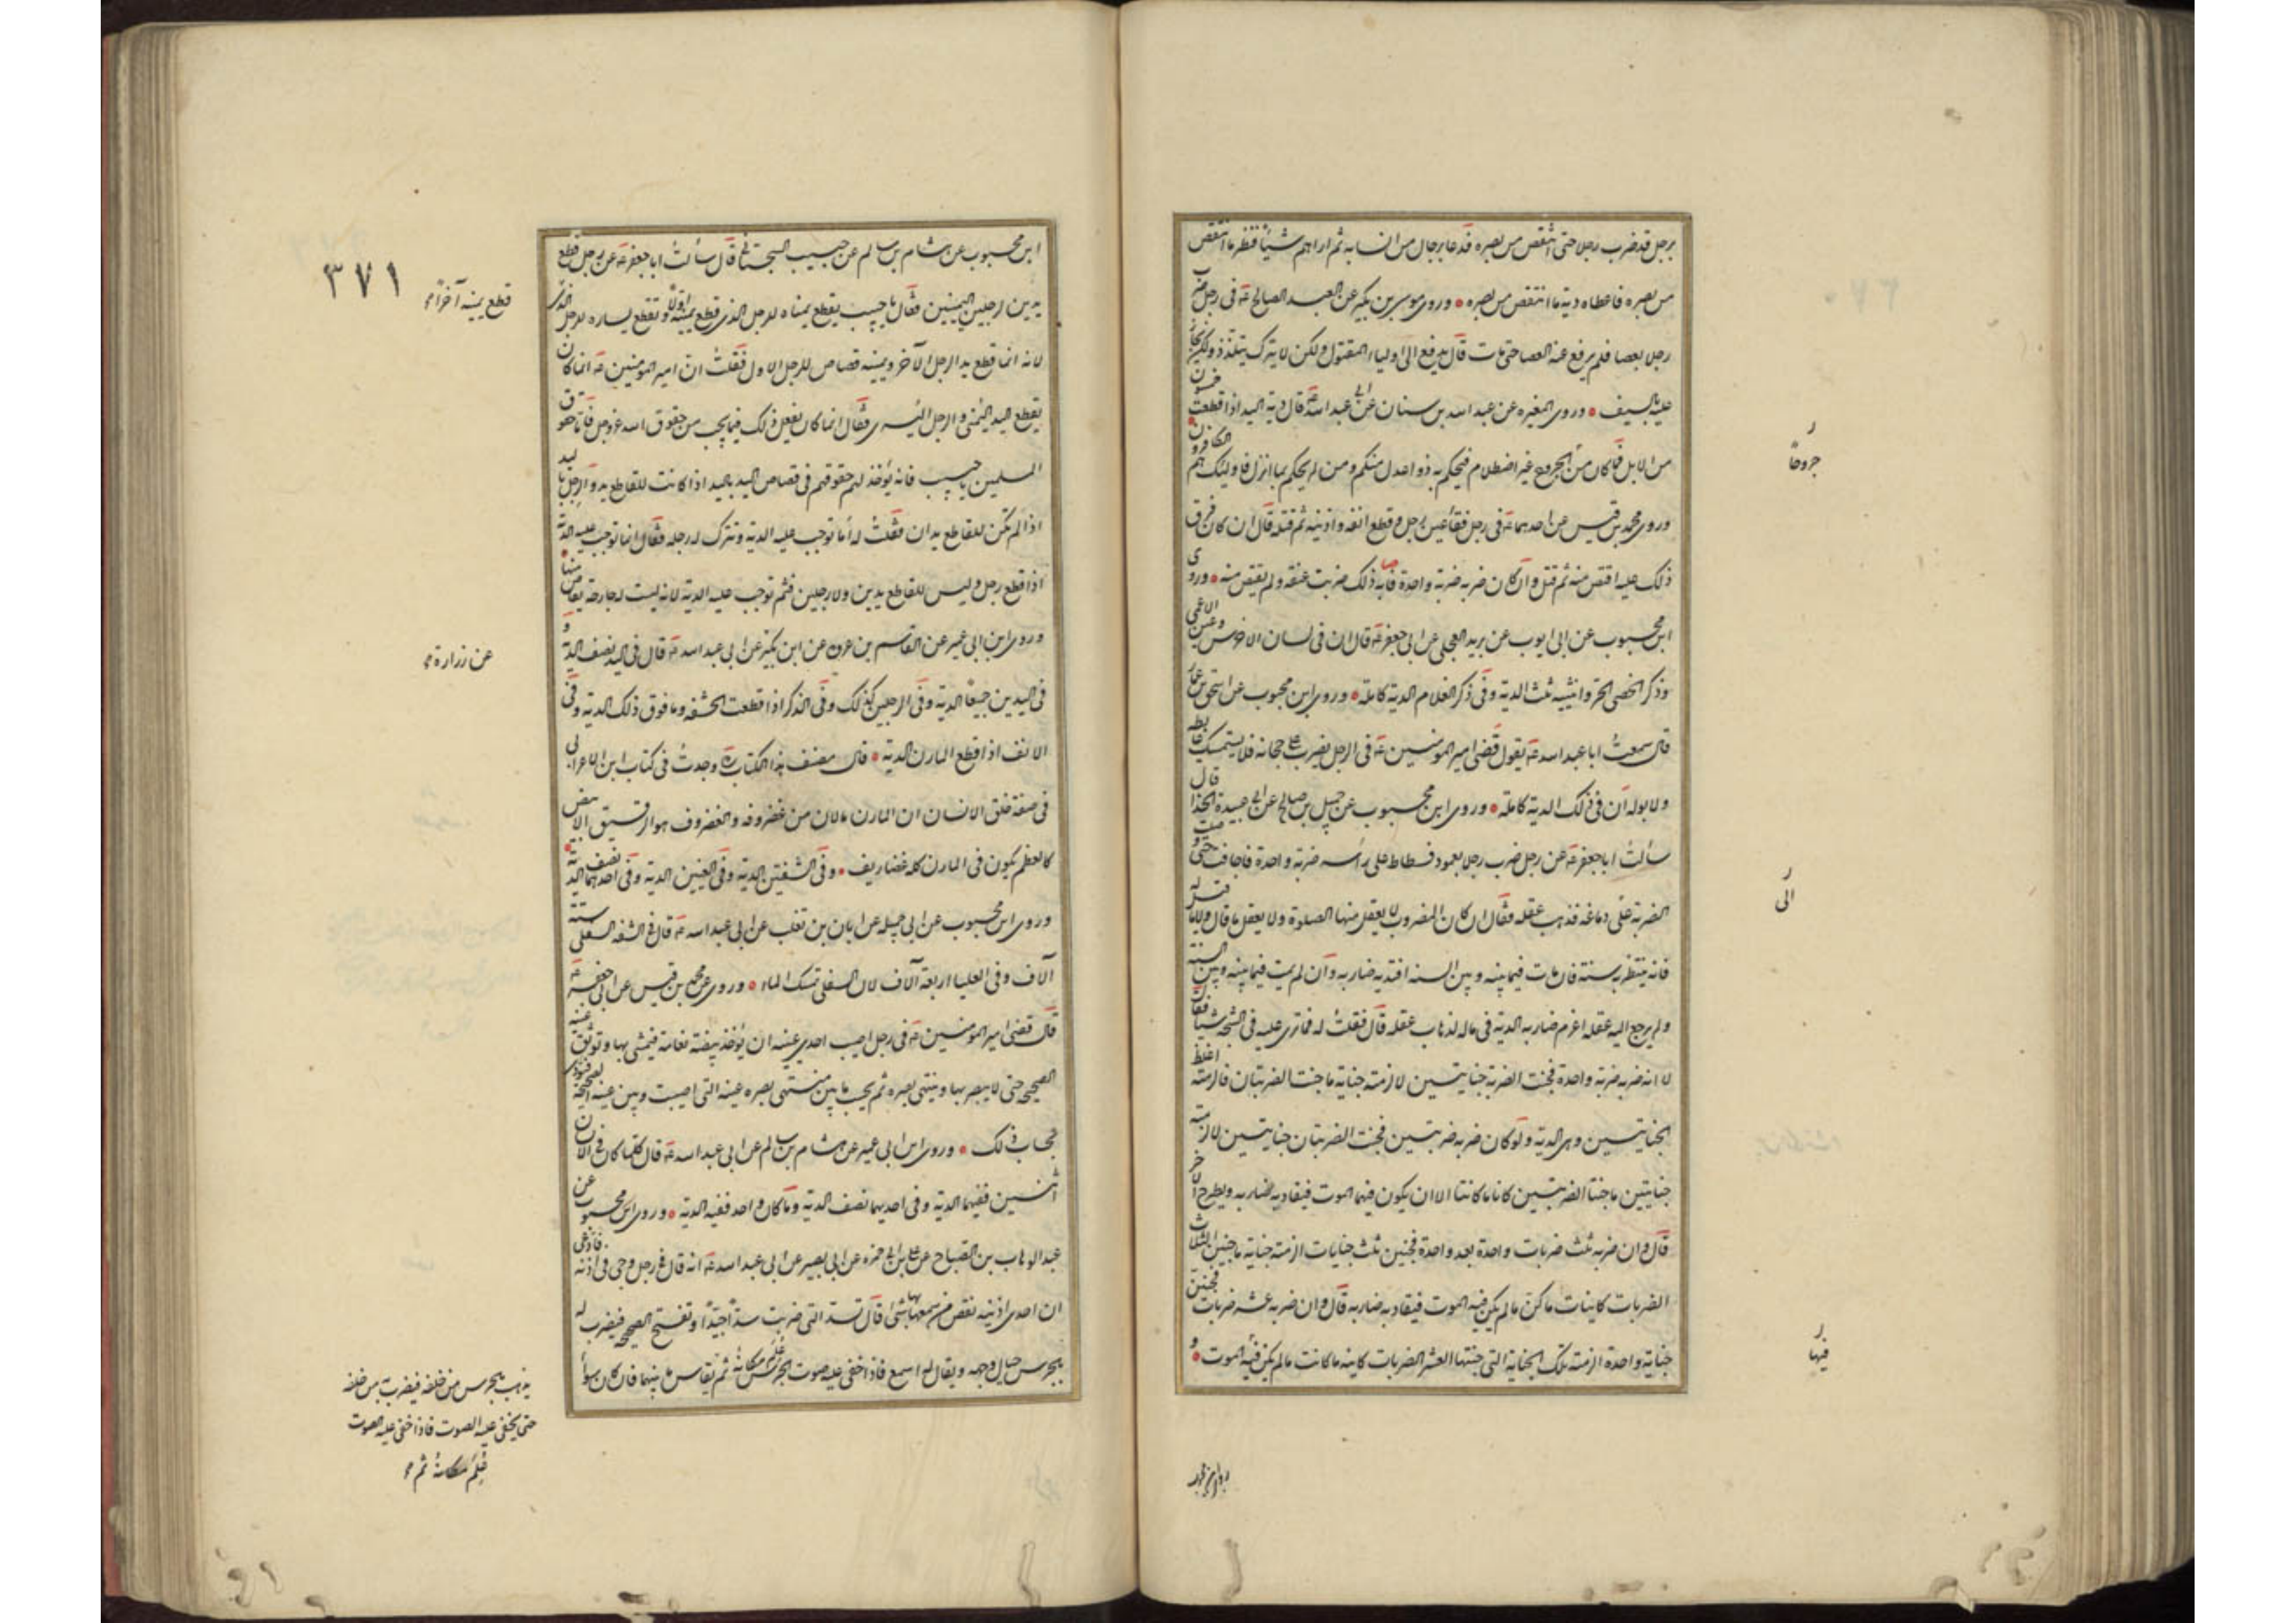 برجل قد ضرب رجلا حتى انتقص من بصره فدعا برجال من اسنانه ثم اراهم شيئا فنظر ما انتقص
من بصره فاعطاه دية ما انتقص من بصره وروى موسى بن بكير عن العبد الصالح عه فى رجل ضرب
رجلا بعصا فلم يرفع عنه العصا حتى مات قال يدفع الى اولياء المقتول ولكن لا يترك يتلذذ ولكن يجاز
عليه بالسيف وروى المغيره عن عبد الله بن سنان عن ابى عبد الله عه قال دية اليد اذا قطعت خمسون
من الابل فما كان من الجروح غير اصطلام فيحكم به ذوا عدل منكم ومن لم يحكم بما انزل فاولئك هم الكافرون
وروى محمد بن قيس عن احدهما عه فى رجل فقأ عين رجل وقطع انفه واذنيه ثم قتله قال ان كان فرق
ذلك عليه اقتص منه ثم قتل وان كان ضربه ضربة واحدة فاصابه ذلك ضربت عنقه ولم يقتص منه وروى
ابن محبوب عن ابى ايوب عن بريد العجلى عن ابى جعفر عه قال ان فى لسان الاخرس وعين الاعمى
وذكر الخصى الحر وانثييه ثلث الدية وفى ذكر الغلام الدية كاملة وروى ابن محبوب عن اسحق بن عمار
قال سمعت ابا عبد الله عه يقول قضى امير المومنين عه فى الرجل يضرب على عجانه فلا يستمسك غايطه
ولا بوله ان فى ذلك الدية كاملة وروى ابن محبوب عن جميل بن صالح عن ابى عبيدة الحذا قال
سألت ابا جعفر عه عن رجل ضرب رجلا بعمود فسطاط على رأسه ضربة واحدة فاجافه حتى وصلت
الضربة على دماغه فذهب عقله فقال ان كان المضروب لا يعقل منها الصلوة ولا يعقل ما قال ولا ما قيل له
فانه ينتظر به سنة فان مات فيما بينه وبين السنه اقيد به ضاربه وان لم يمت فيما بينه وبين السنة
ولم يرجع اليه عقله اغرم ضاربه الدية فى ماله لذهاب عقله قال فقلت له فما ترى عليه فى الشجة شيئا فقال
لا انه ضربه ضربة واحدة فجنت الضربة جنايتين لازمته جناية ما جنت الضربتان فالزمته اغلظ
الجنايتين وهى الدية ولو كان ضربه ضربتين فجنت الضربتان جنايتين لالزمته
جنايتين ما جنتا الضربتين كانا ما كانتا الا ان يكون فيهما الموت فيقاد به ضاربه ويطرح الاخر
قال وان ضربه ثلث ضربات واحدة بعد واحدة فجنين ثلث جنايات الزمته جناية ما جنين الثلاث
الضربات كاينات ما كن ما لم يكن فيه الموت فيقاد به ضاربه قال وان ضربه عشر ضربات فجنين
جناية واحدة الزمته تلك الجناية التى جنتها العشر الضربات كاينة ما كانت ما لم يكن فيه الموت و
جروحاً
الى
فيها
٣٧١
ابن محبوب عن هشام بن سالم عن حبيب السجستانى قال سألت ابا جعفر عه عن رجل قطع
يدين لرجلين اليمينين فقال يا حبيب يقطع يمناه للرجل الذى قطع يمينه اولا وتقطع يساره للرجل الذى
لانه انما قطع يد الرجل الآخر ويمينه قصاص للرجل الاول فقلت ان امير المومنين عه انما كان
يقطع اليد اليمنى والرجل اليسرى فقال انما كان يفعل ذلك فيما يجب من حقوق الله عز وجل فاما حقوق
المسلمين يا حبيب فانه يؤخذ لهم حقوقهم فى قصاص اليد باليد اذا كانت للقاطع يد والرجل باليد
اذا لم تكن للقاطع يدان فقلت له أما توجب عليه الدية وتترك له رجله فقال انما توجب عليه الدية
اذا قطع رجل وليس للقاطع يدين ولا رجلين فثم توجب عليه الدية لانه ليست له جارحة يقاص منها
وروى ابن ابى عمير عن القاسم بن عروه عن ابن بكير عن ابى عبد الله عه قال فى اليد نصف الدية و
فى اليدين جميعا الدية وفى الرجلين كذلك وفى الذكر اذا قطعت الحشفه وما فوق ذلك الدية وفى
الانف اذا قطع المارن الدية قال مصنف هذا الكتاب ره وجدت فى كتاب ابن الاعرابى
فى صفة خلق الانسان ان المارن ما لان من غضروفه والغضروف هو الرقيق الابيض
كالعظم يكون فى المارن كله غضاريف وفى الشفتين الدية وفى العينين الدية وفى احدهما نصف الدية
وروى ابن محبوب عن ابى جميله عن ابان بن تغلب عن ابى عبد الله عه قال فى الشفه السفلى ستة
آلاف وفى العليا اربعة آلاف لان السفلى تمسك الماء وروى عن محمد بن قيس عن ابى جعفر عه
قال قضى امير المومنين عه فى رجل اصيب احدى عينيه ان يؤخذ بيضة نعامة فيمشى بها وتوثق عينه
الصحيحه حتى لا يبصر بها وينتهى بصره ثم يحسب ما بين منتهى بصره عينه التى اصيبت وبين عينه الصحيحة فيؤدى
بحساب ذلك وروى ابن ابى عمير عن هشام بن سالم عن ابى عبد الله عه قال كلما كان فى الانسان
اثنين ففيهما الدية وفى احديهما نصف الدية وما كان واحد ففيه الدية وروى ابن محبوب عن
عبد الوهاب بن الصباح عن على بن ابى حمزه عن ابى بصير عن ابى عبد الله عه انه قال فى رجل وجى فى اذنه فادعى
ان احدى اذنيه نقص من سمعها شئ قال تسد التى ضربت سدا جيدا وتفتح الصحيحه فيضرب له
بالجرس حيال وجهه ويقال له اسمع فاذا خفى عليه صوت الجرس علم مكانه ثم يقاس ما بينهما فان كان سواء
قطع يمينه آخراً
عن زرارة
يذهب بالجرس من خلفه فيضرب به من خلفه
حتى يخفى عليه الصوت فاذا خفى عليه الصوت
عُلِّمَ مكانه ثم